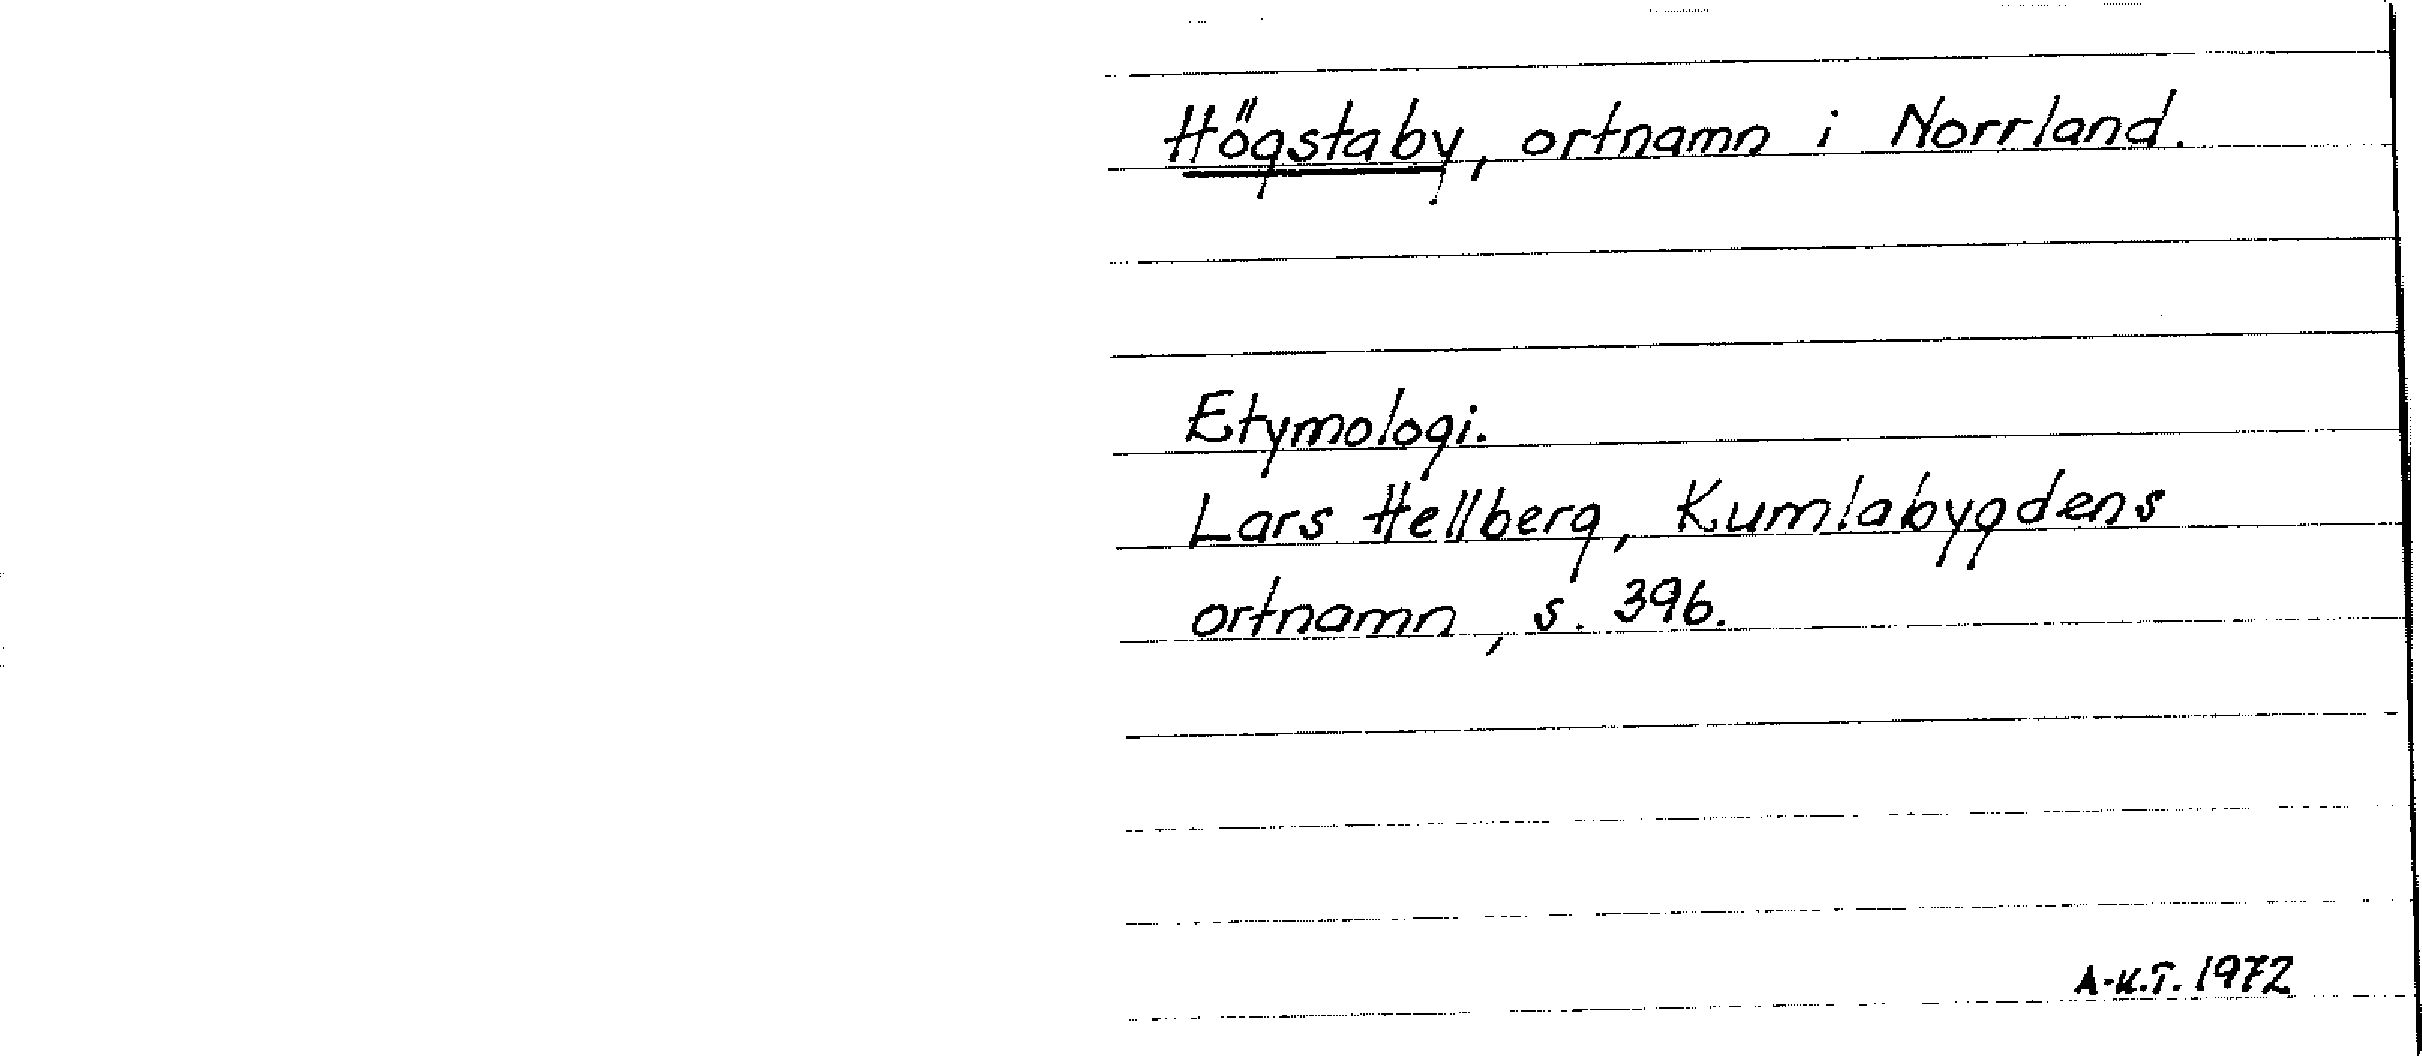 Högstaby, ortnamn i Norrland.
Etymologi.
Lars Hellberg, Kumlabygdens
ortnamn, s. 396.
A-K.T. 1972